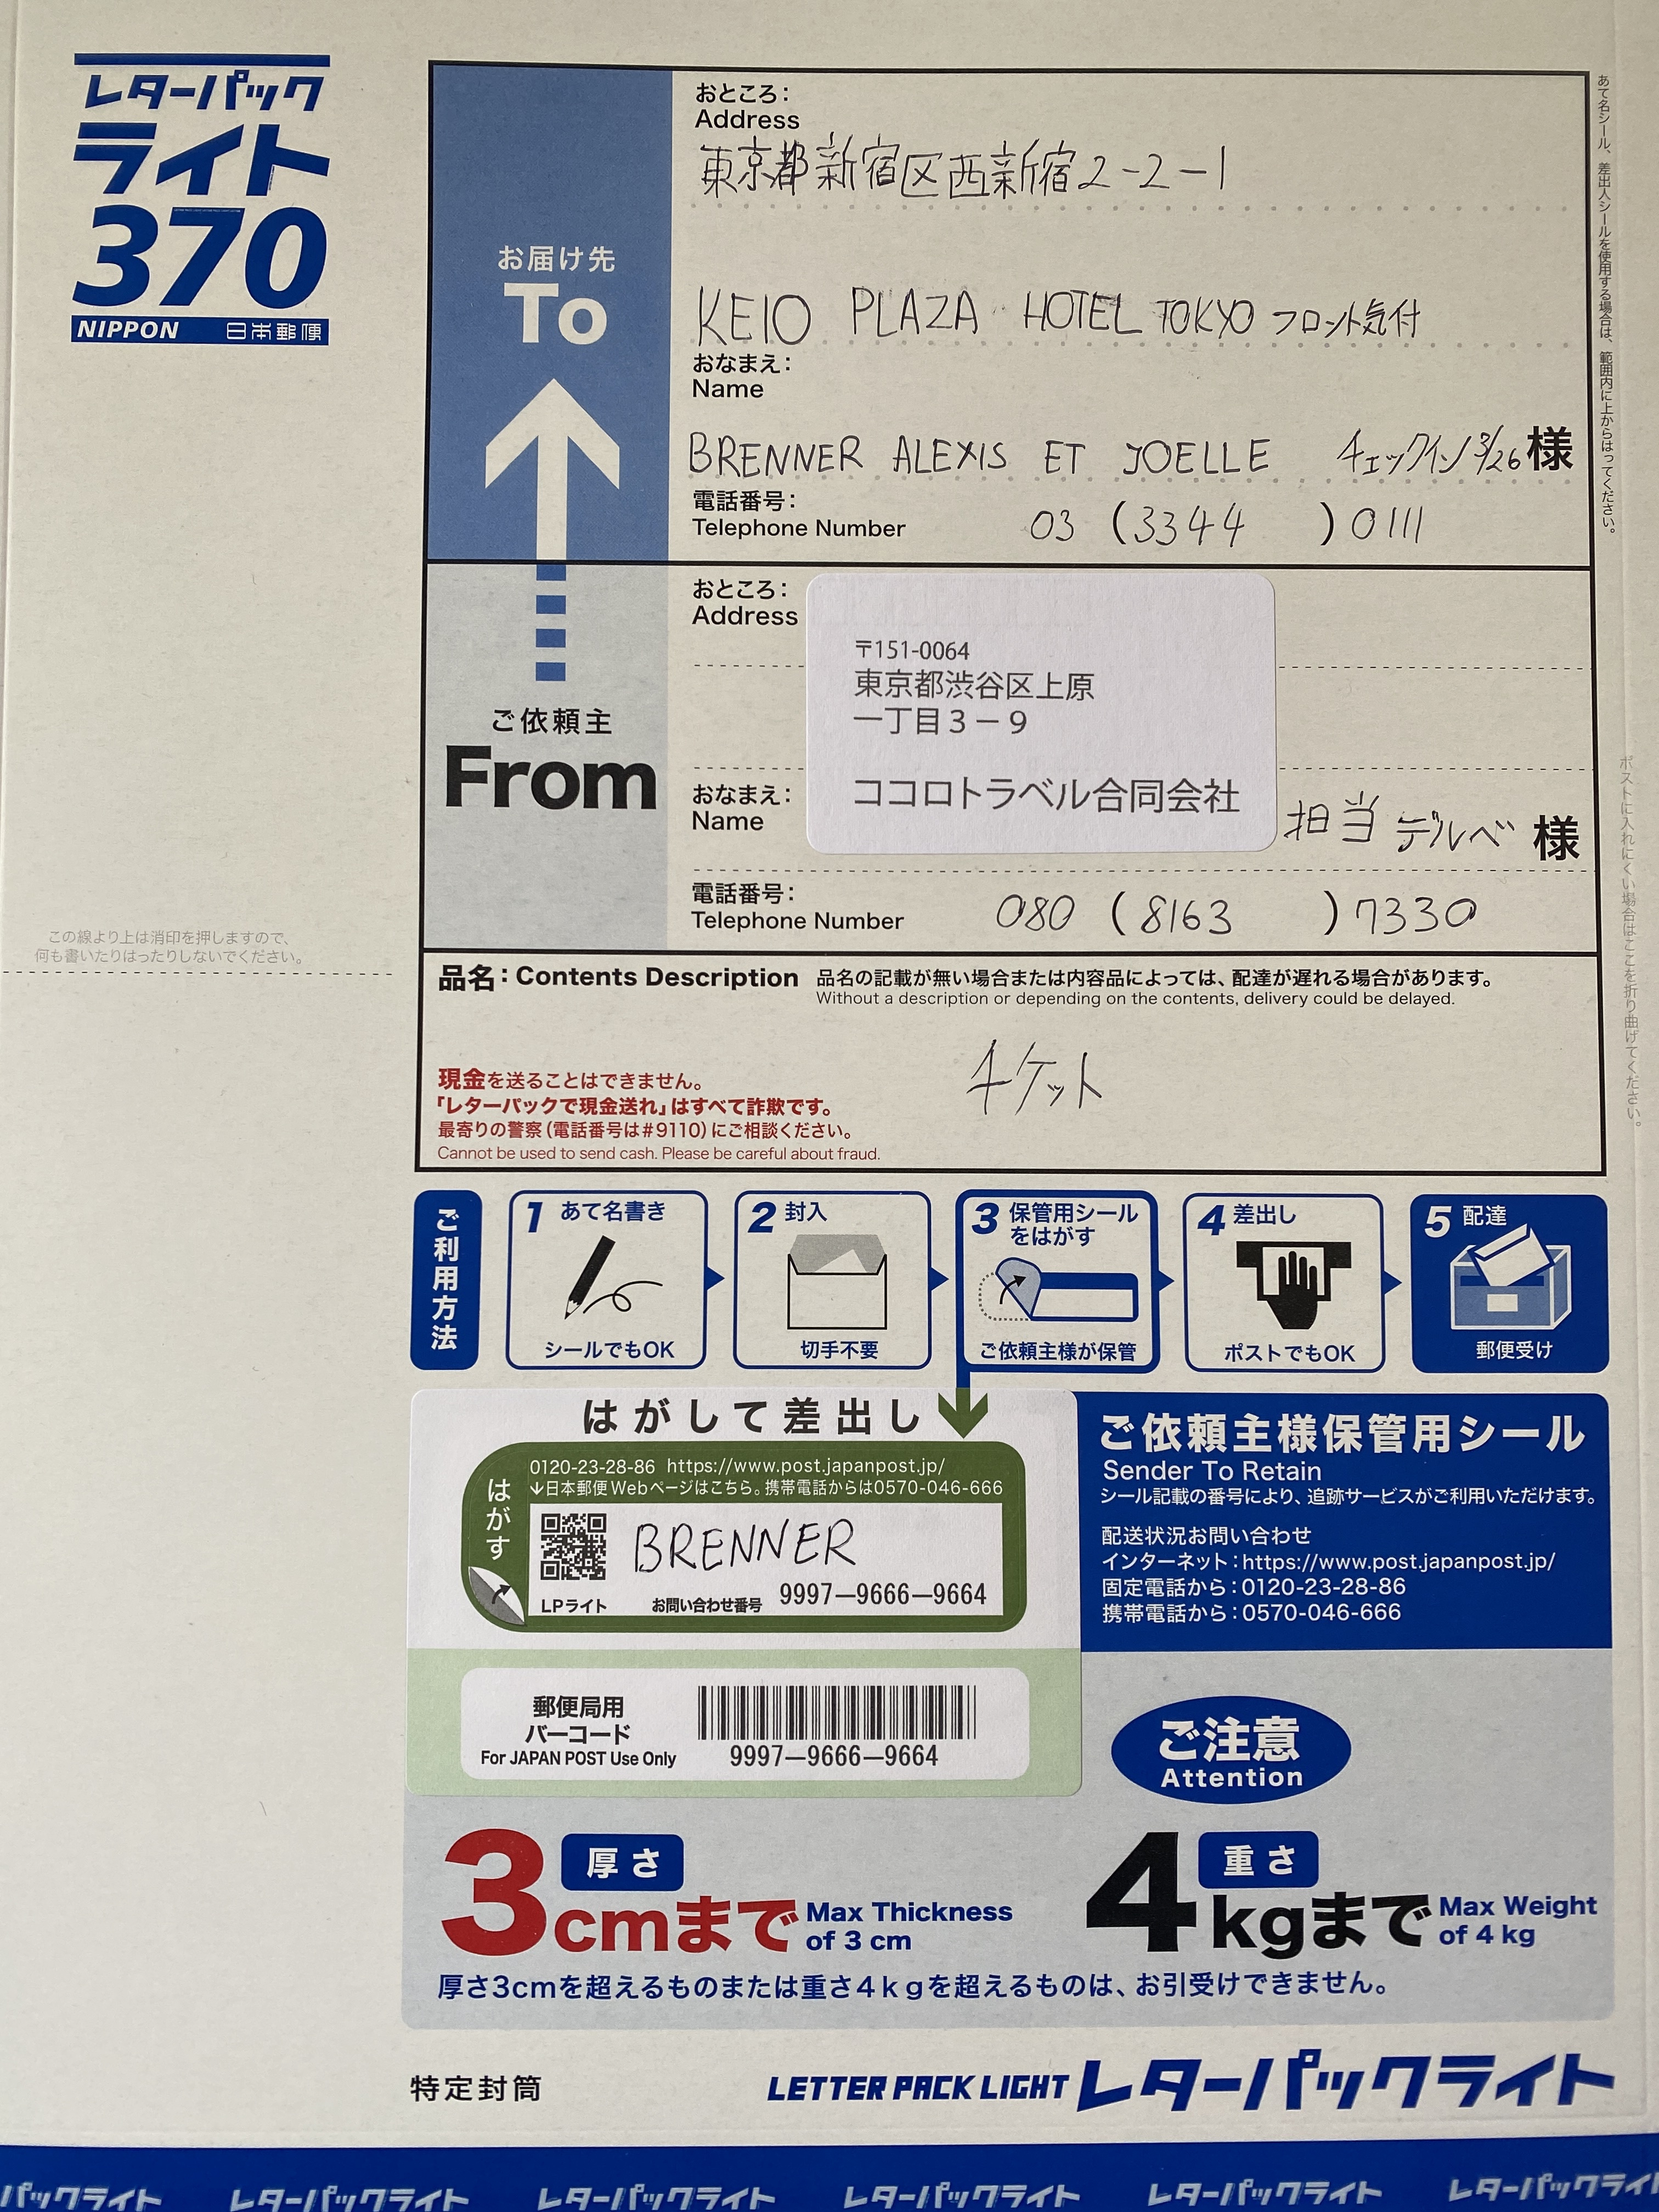 レターパック
ライト
370
NIPPON 日本郵便
お届け先
To
おところ:
Address
東京都新宿区西新宿2-2-1
KEIO PLAZA HOTEL TOKYO フロント気付
おなまえ:
Name
BRENNER ALEXIS ET JOELLE チェックイン3/26様
電話番号:
Telephone Number
03 (3344 ) 0111
あて名シール、差出人シールを使用する場合は、範囲内に上からはってください。
ご依頼主
From
おところ:
Address
〒151-0064
東京都渋谷区上原
一丁目3-9
おなまえ:
Name
ココロトラベル合同会社
担当 デルベ 様
電話番号:
Telephone Number
080 (8163 ) 7330
ポストに入れにくい場合はここを折り曲げてください。
この線より上は消印を押しますので、
何も書いたりはったりしないでください。
品名:Contents Description 品名の記載が無い場合または内容品によっては、配達が遅れる場合があります。
Without a description or depending on the contents, delivery could be delayed.
チケット
現金を送ることはできません。
「レターパックで現金送れ」はすべて詐欺です。
最寄りの警察(電話番号は#9110)にご相談ください。
Cannot be used to send cash. Please be careful about fraud.
ご利用方法
1 あて名書き
シールでもOK
2 封入
切手不要
3 保管用シール
をはがす
ご依頼主様が保管
4 差出し
ポストでもOK
5 配達
郵便受け
はがして差出し
はがす
0120-23-28-86 https://www.post.japanpost.jp/
↓日本郵便Webページはこちら。携帯電話からは0570-046-666
BRENNER
LPライト お問い合わせ番号 9997-9666-9664
ご依頼主様保管用シール
Sender To Retain
シール記載の番号により、追跡サービスがご利用いただけます。
配送状況お問い合わせ
インターネット:https://www.post.japanpost.jp/
固定電話から:0120-23-28-86
携帯電話から:0570-046-666
郵便局用
バーコード
For JAPAN POST Use Only
9997-9666-9664
ご注意
Attention
厚さ
3cmまで Max Thickness
of 3 cm
重さ
4kgまで Max Weight
of 4 kg
厚さ3cmを超えるものまたは重さ4kgを超えるものは、お引受けできません。
特定封筒
LETTER PACK LIGHT レターパックライト
パックライト レターパックライト レターパックライト レターパックライト レターパックライト レターパックライ